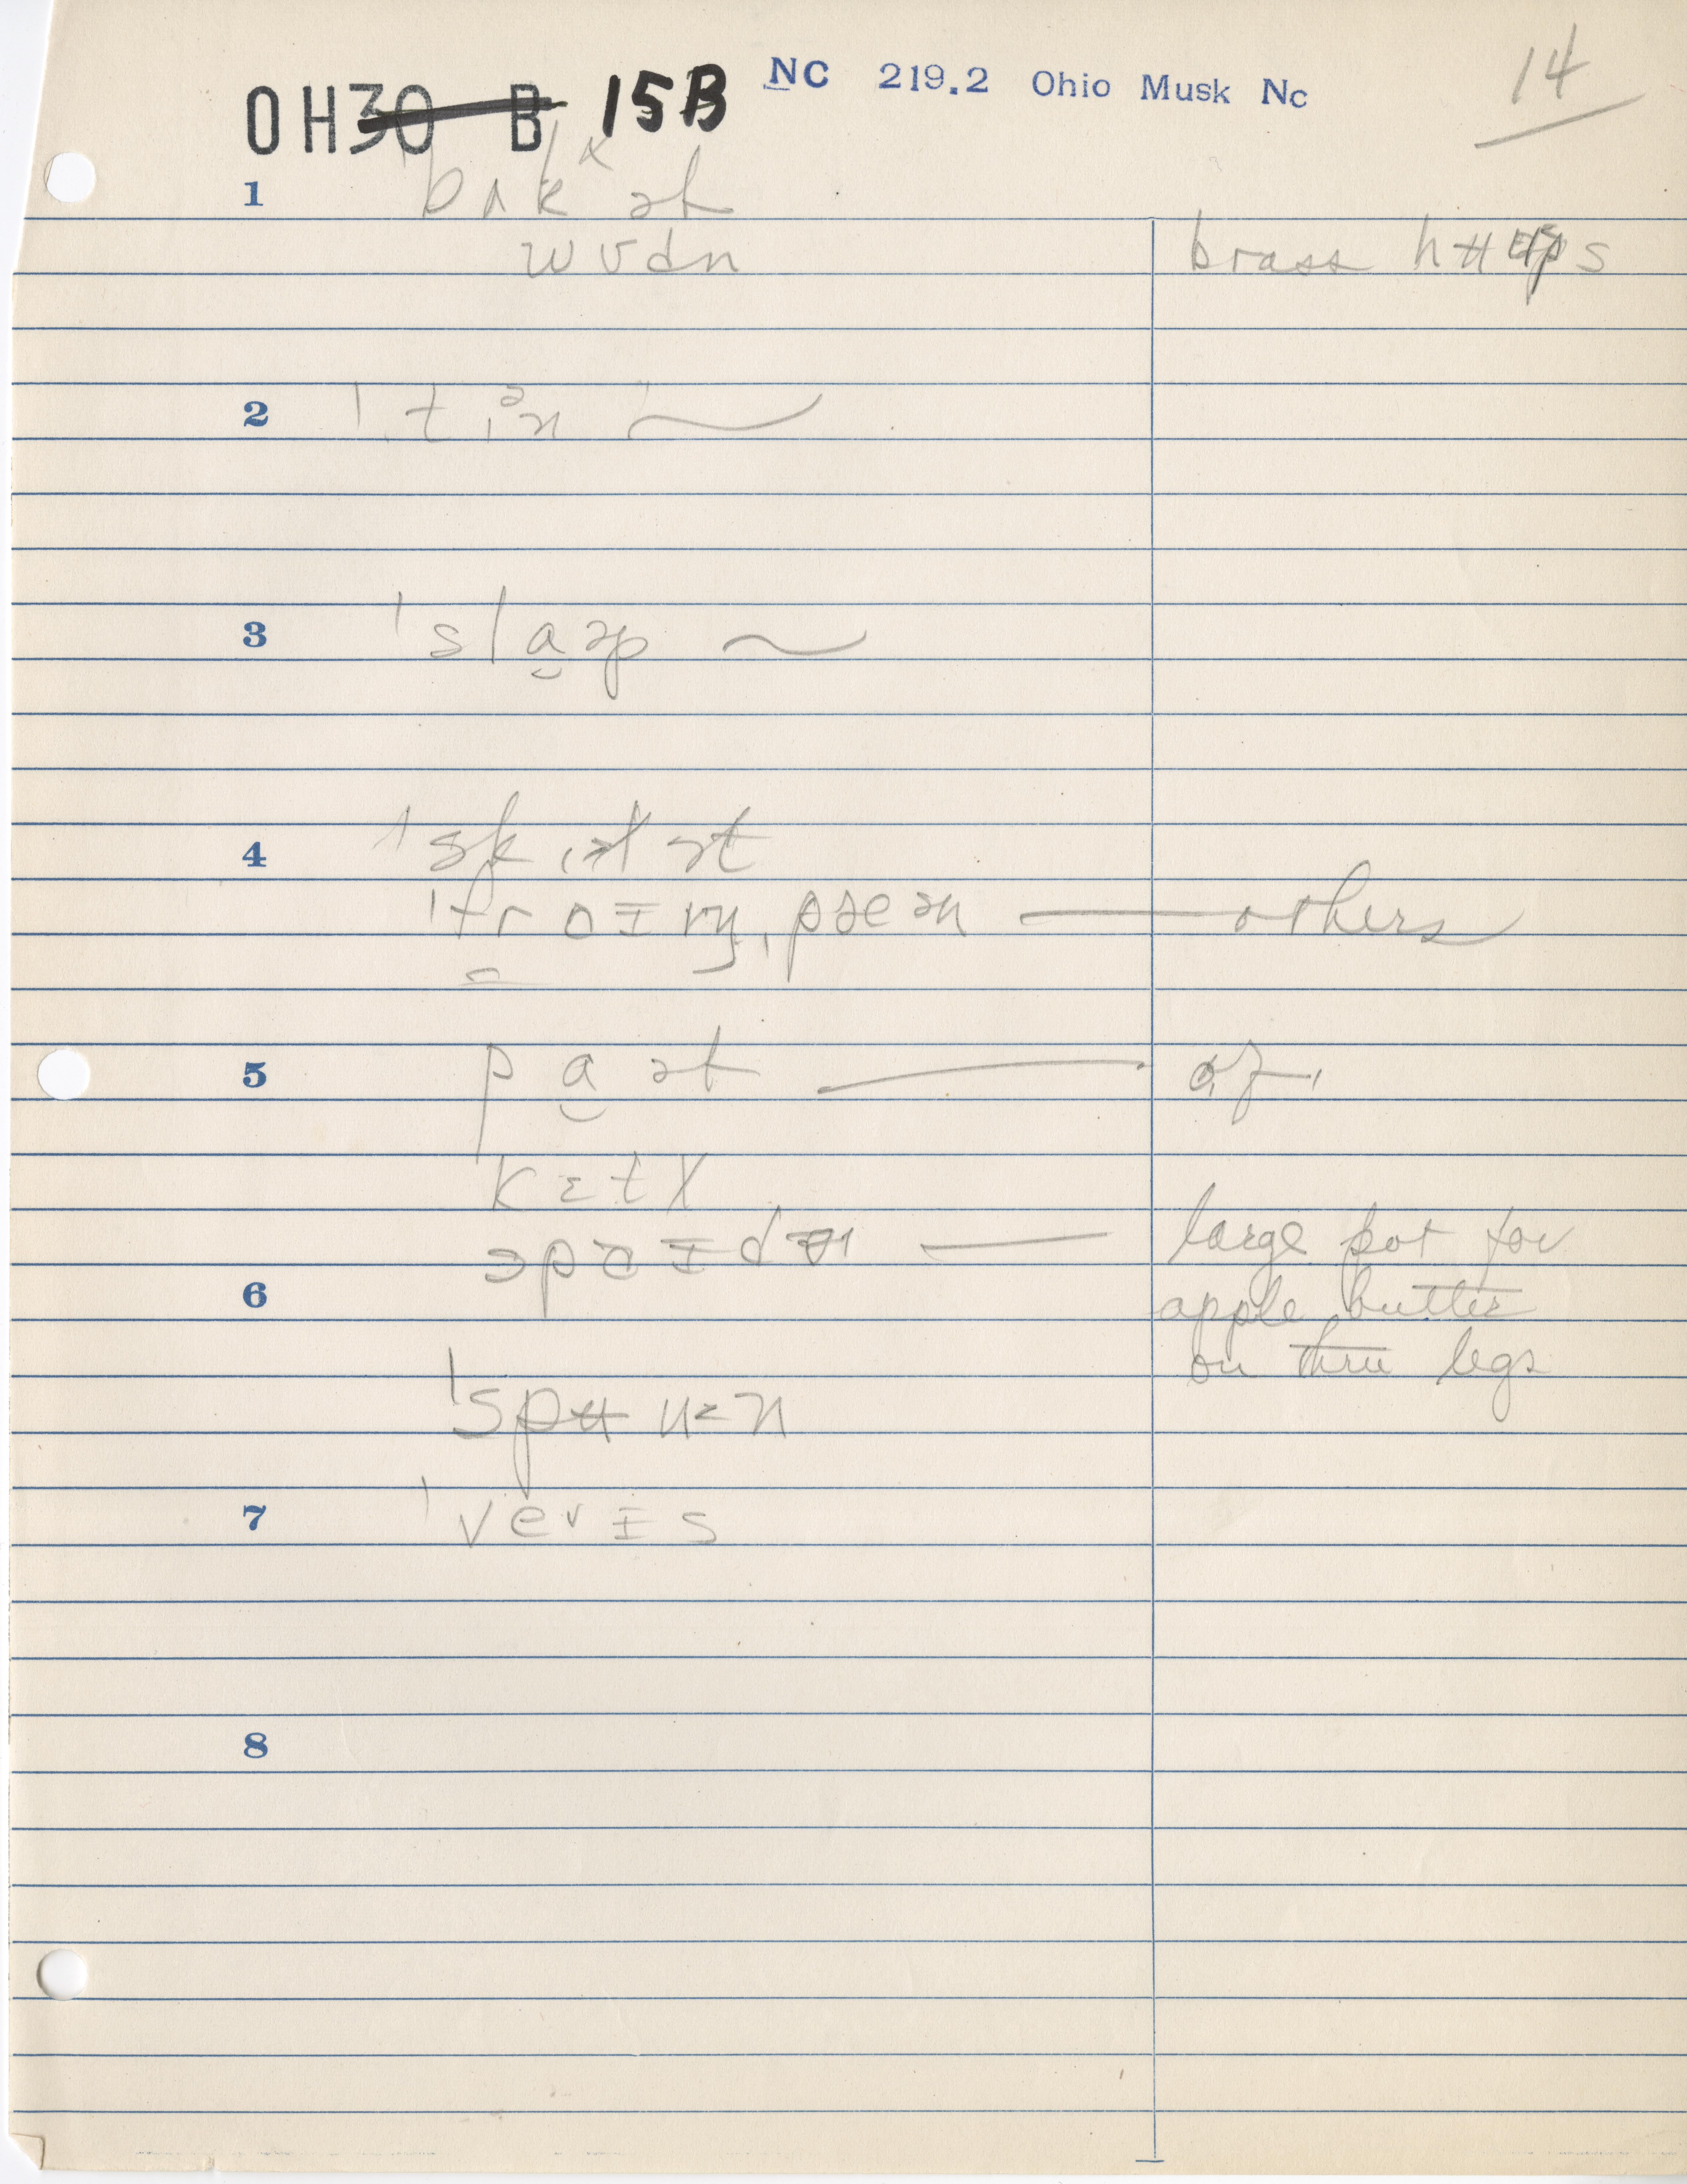 OH30 B 15B NC 219.2 Ohio Musk Nc 14
1 ˈbʌkˣət
wʊdn brass hʉps
2 ˈtɪᵊn ~
3 ˈslɑ̬əp ~
4 ˈskɪlət
ˈfrɒɪɪŋˌpæən — others
5 pɑ̬ət — of
kɛtl
spɑɪdɚ — large pot for
6 apple butter
on three legs
ˈspʉnz
7 ˈveɪs
8